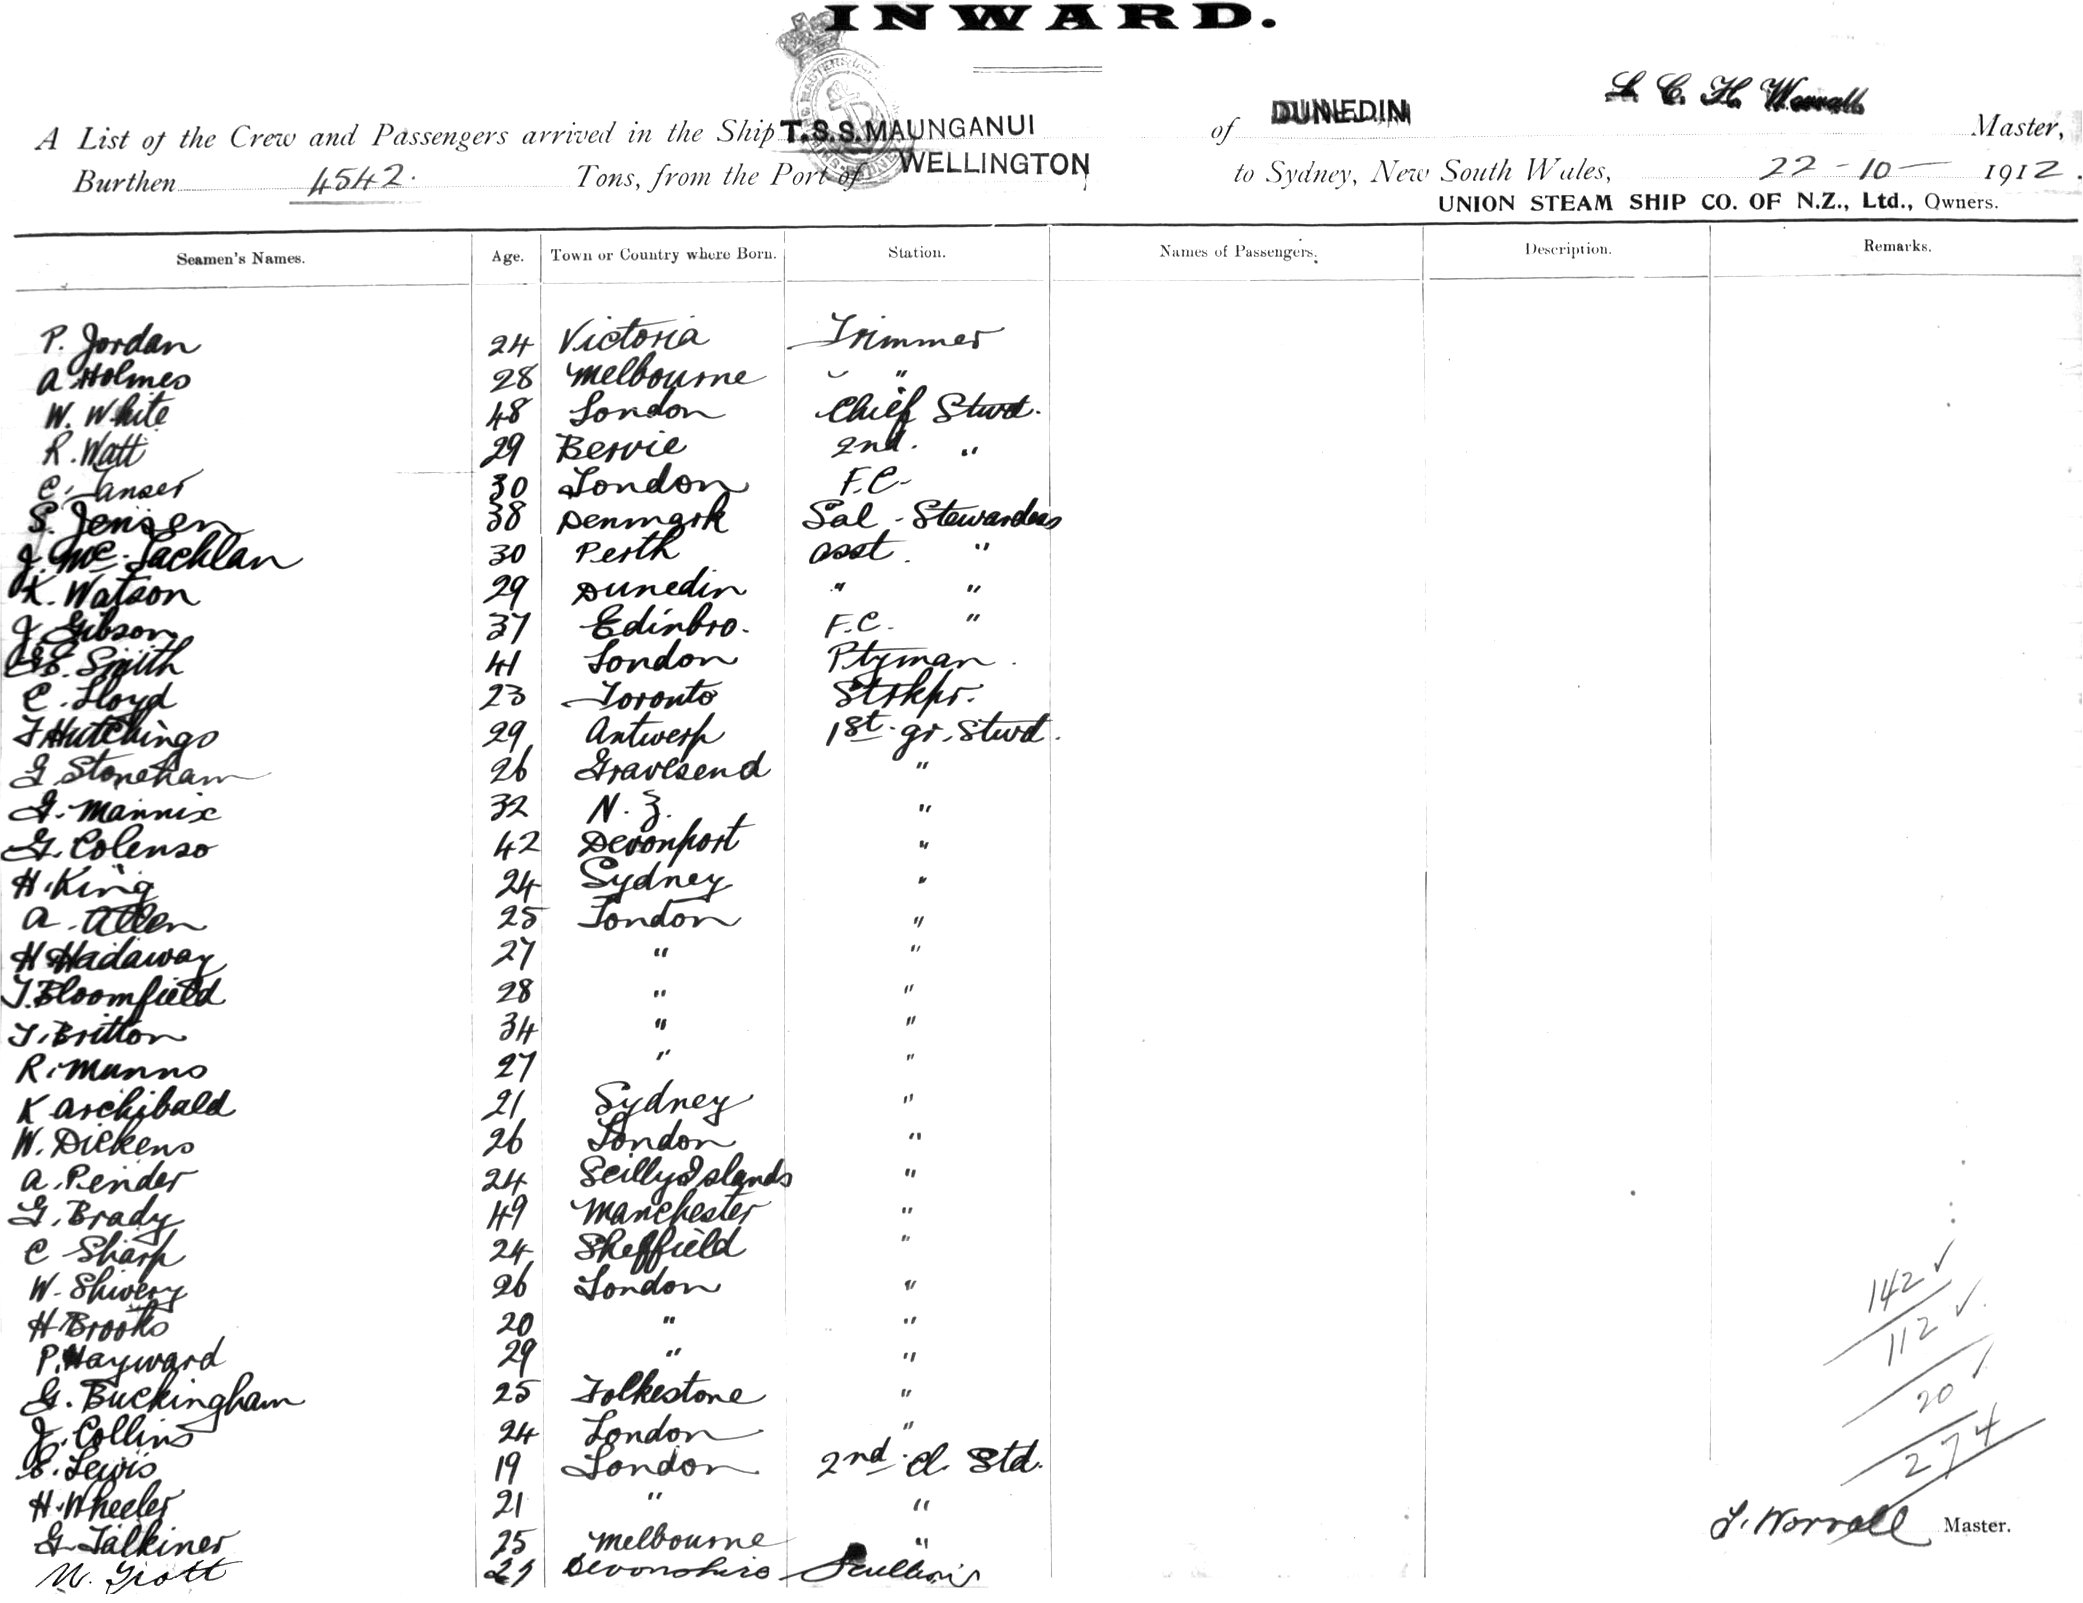 INWARD.
A List of the Crew and Passengers arrived in the Ship T.S.S. MAUNGANUI of DUNEDIN L. C. H. Worrall Master,
Burthen 4542. Tons, from the Port of WELLINGTON to Sydney, New South Wales, 22-10- 1912.
UNION STEAM SHIP CO. OF N.Z., Ltd., Owners.
Seamen's Names. Age. Town or Country where Born. Station. Names of Passengers. Description. Remarks.
P. Jordan 24 Victoria Trimmer
A Holmes 28 Melbourne "
W. White 48 London Chief Stwd.
R. Watt 29 Bervie 2nd. "
C. Tanser 30 London F.C.
S. Jensen 38 Denmark Sal - Stewardess
J. McLachlan 30 Perth asst. "
K. Watson 29 Dunedin " "
J. Gibson 37 Edinbro. F.C. "
Smith 41 London Ptyman.
C. Lloyd 23 Toronto Strkpr.
F Hutchings 29 Antwerp 1st. gr. Stwd.
G. Stoneham 26 Gravesend "
G. Mannix 32 N. Z. "
G. Colenso 42 Devonport "
H. King 24 Sydney "
A. Allen 25 London "
H Hadaway 27 " "
T. Bloomfield 28 " "
T. Britton 34 " "
R. Munns 27 " "
K Archibald 21 Sydney "
W. Dickens 26 London "
A. Pender 24 Scilly Islands "
G. Brady 49 Manchester "
C Sharp 24 Sheffield "
W. Shivery 26 London "
H Brooks 20 " "
P. Hayward 29 " "
G. Buckingham 25 Folkestone "
J. Collins 24 London "
S. Lewis 19 London 2nd. cl. Std.
H. Wheeler 21 " "
G. Falkiner 25 Melbourne "
W. Trott Devonshire
142
112
20
274
L. Worrall Master.